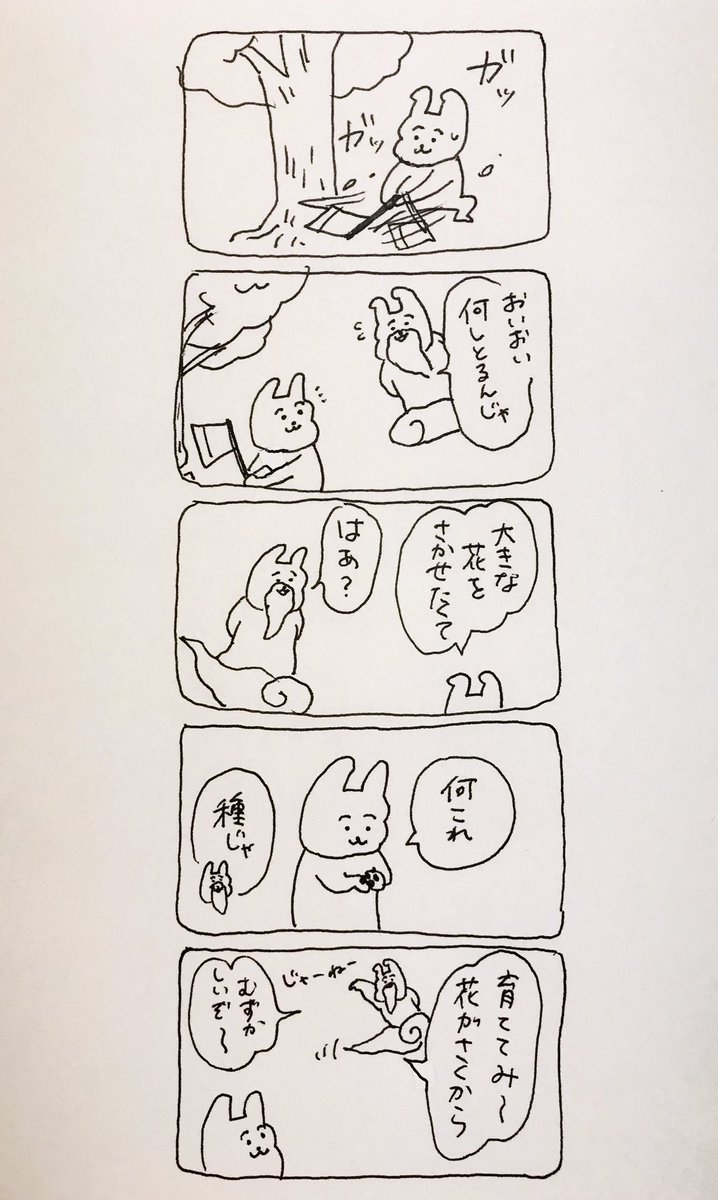 ガッ
ガッ
おいおい
何しとるんじゃ
大きな
花を
さかせたくて
はあ?
何これ
種じゃ
育ててみ〜
花がさくから
じゃーねー
むずか
しいぞ〜